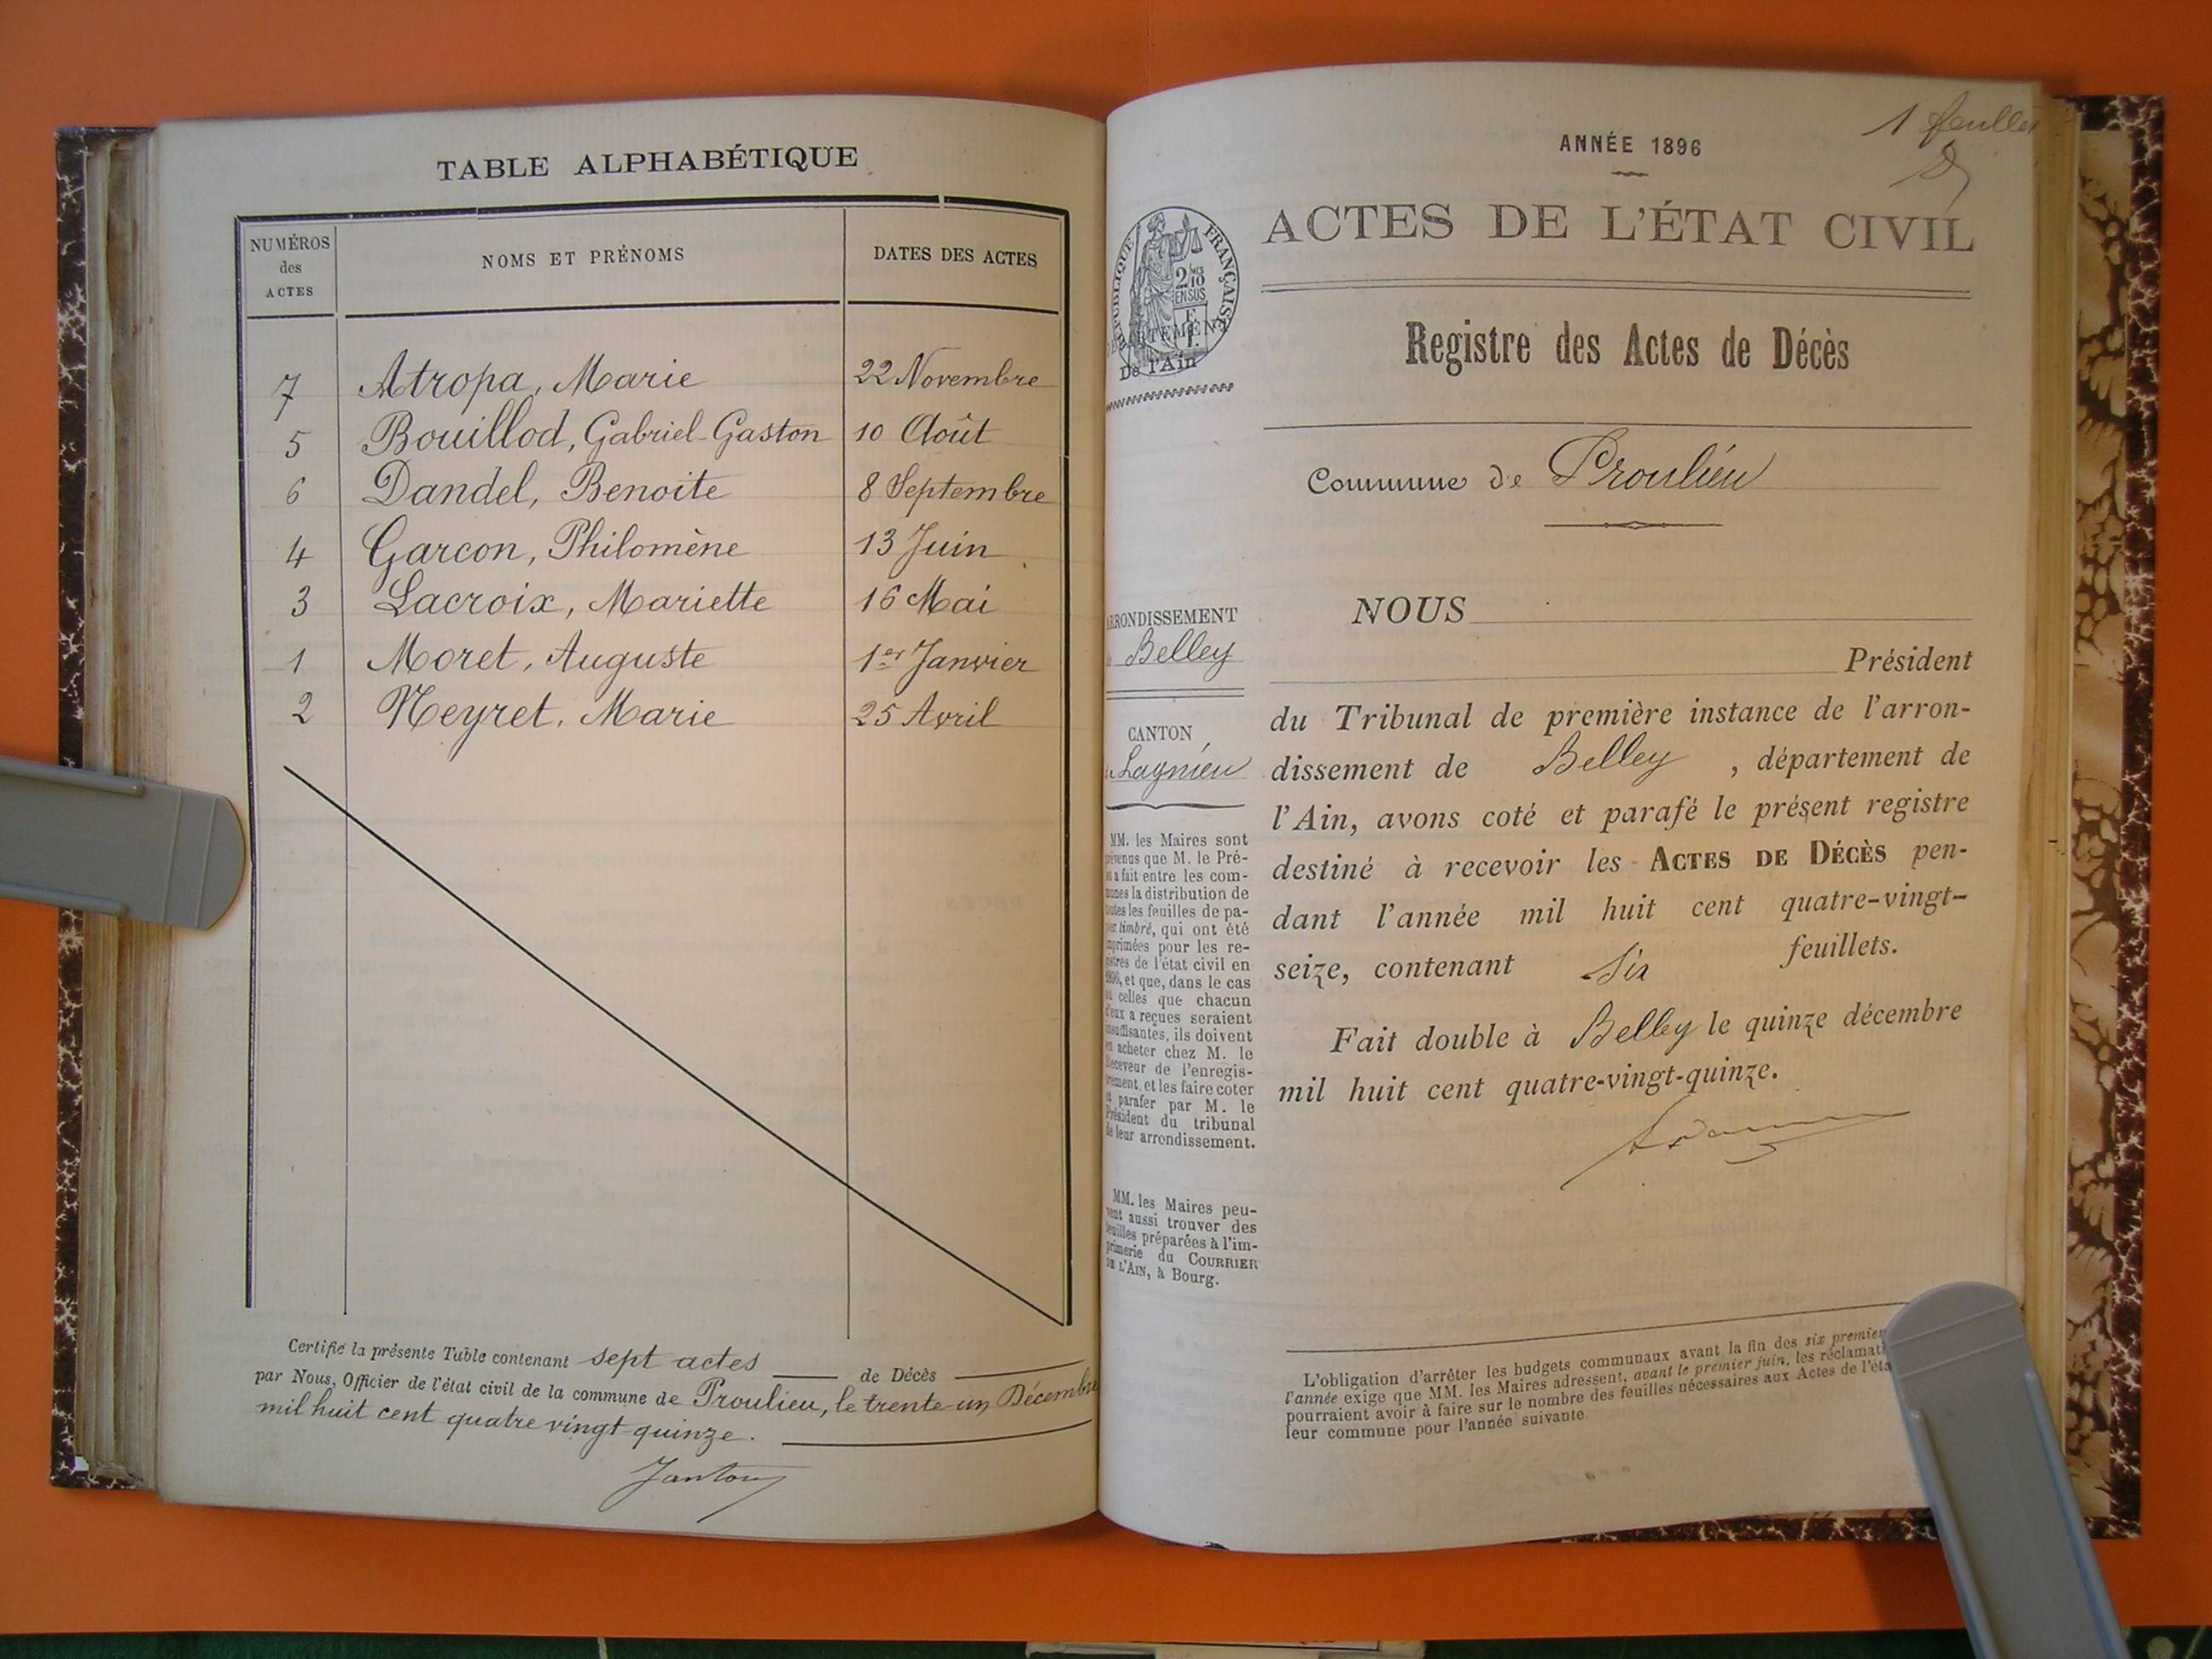 TABLE ALPHABÉTIQUE
NUMÉROS des ACTES
NOMS ET PRÉNOMS
DATES DES ACTES
7 Atropa, Marie 22 Novembre
5 Bouillod, Gabriel-Gaston 10 Août
6 Dandel, Benoite 8 Septembre
4 Garcon, Philomène 13 Juin
3 Lacroix, Mariette 16 Mai
1 Moret, Auguste 1er Janvier
2 Neyret, Marie 25 Avril
Certifié la présente Table contenant sept actes de Décès
par Nous, Officier de l'état civil de la commune de Proulieu, le trente-un Décembre
mil huit cent quatre vingt quinze.
Janton
1 feuillet
ANNÉE 1896
ACTES DE L'ÉTAT CIVIL
RÉPUBLIQUE FRANÇAISE
2/10
EN SUS
DÉPARTEMENT
De l'Ain
Registre des Actes de Décès
Commune de Proulieu
ARRONDISSEMENT
de Belley
CANTON
de Lagnieu
MM. les Maires sont
prévenus que M. le Pré-
fet a fait entre les com-
munes la distribution de
toutes les feuilles de pa-
pier timbré, qui ont été
imprimées pour les re-
gistres de l'état civil en
1896, et que, dans le cas
où celles que chacun
d'eux a reçues seraient
insuffisantes, ils doivent
en acheter chez M. le
Receveur de l'enregis-
trement, et les faire coter
et parafer par M. le
Président du tribunal
de leur arrondissement.
MM. les Maires peu-
vent aussi trouver des
feuilles préparées à l'im-
primerie du COURRIER
DE L'AIN, à Bourg.
NOUS
Président
du Tribunal de première instance de l'arron-
dissement de Belley , département de
l'Ain, avons coté et parafé le présent registre
destiné à recevoir les ACTES DE DÉCÈS pen-
dant l'année mil huit cent quatre-vingt-
seize, contenant Six feuillets.
Fait double à Belley le quinze décembre
mil huit cent quatre-vingt-quinze.
L'obligation d'arrêter les budgets communaux avant la fin des six premier
l'année exige que MM. les Maires adressent, avant le premier juin, les réclamati
pourraient avoir à faire sur le nombre des feuilles nécessaires aux Actes de l'éta
leur commune pour l'année suivante.